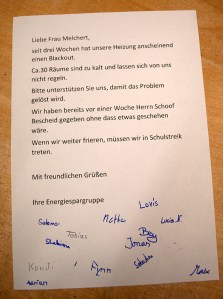 Liebe Frau Melchert,
seit drei Wochen hat unsere Heizung anscheinend
einen Blackout.
Ca.30 Räume sind zu kalt und lassen sich von uns
nicht regeln.
Bitte unterstützen Sie uns, damit das Problem
gelöst wird.
Wir haben bereits vor einer Woche Herrn Schoof
Bescheid gegeben ohne dass etwas geschehen
wäre.
Wenn wir weiter frieren, müssen wir in Schulstreik
treten.
Mit freundlichen Grüßen
Ihre Energiespargruppe
Lovis
Tobias
Jonas
Fynn